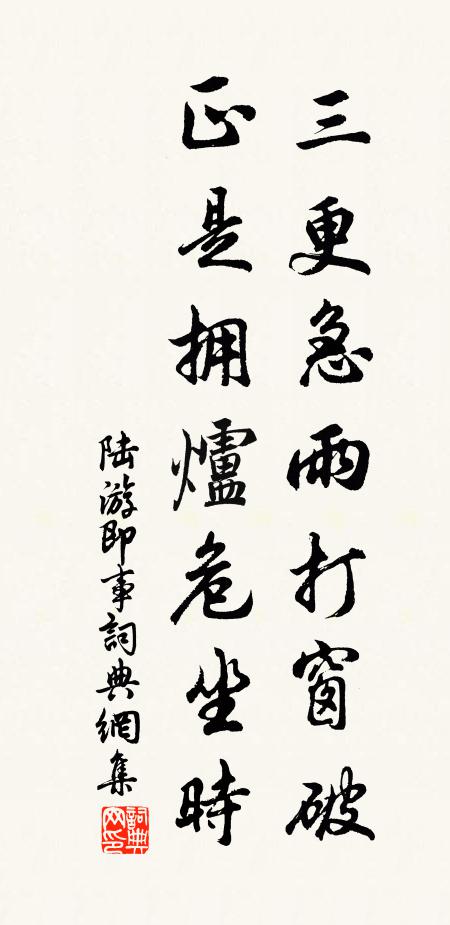 三更急雨打窗破
正是拥爐危坐時
陆游即事詞典網集
詞典网印